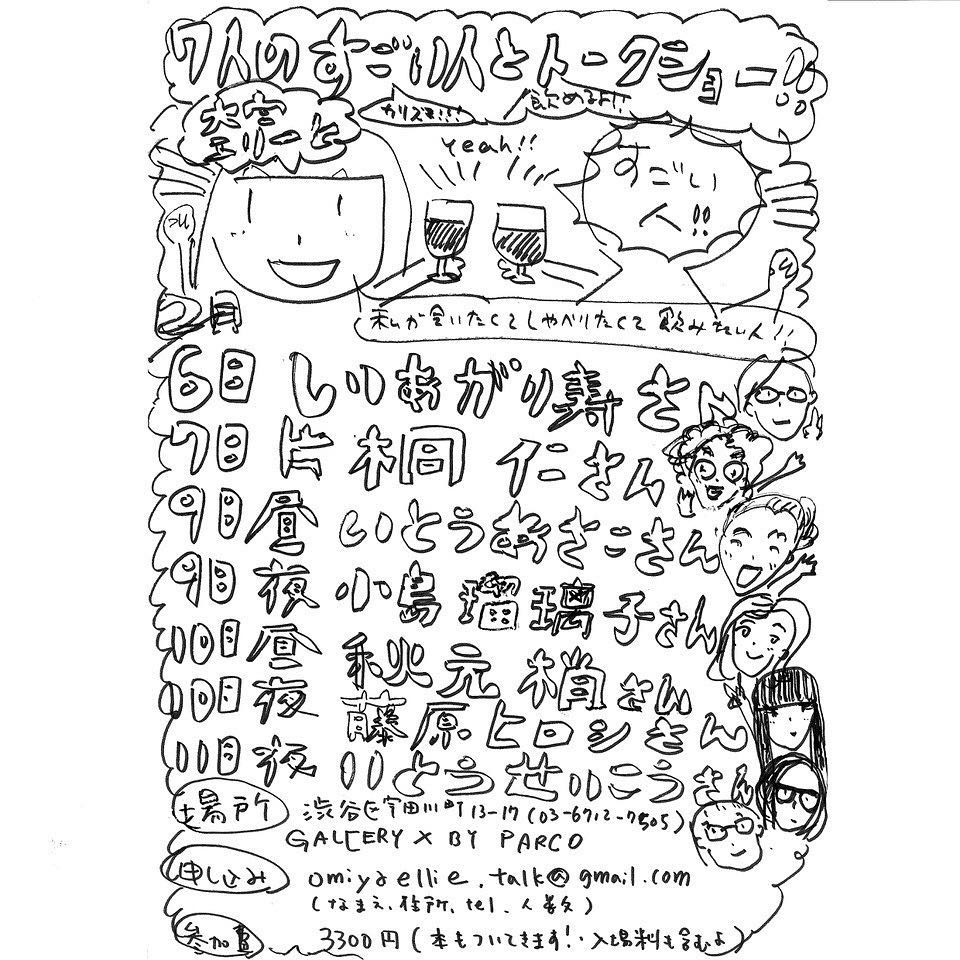 7人のすごい人とトークショー!!
カリスマ!!!
飲めるよ!!
大宮エリーと
yeah!!
すごい人!!
2月
私が会いたくてしゃべりたくて飲みたい人!!
6日 しりあがり寿さん
7日 片桐仁さん
9日昼 いとうあさこさん
9日夜 小島瑠璃子さん
10日昼 秋元梢さん
10日夜 藤原ヒロシさん
11日夜 いとうせいこうさん
場所 渋谷区宇田川町13-17 (03-6712-7505)
GALLERY X BY PARCO
申し込み omiyaellie.talk@gmail.com
(なまえ、住所、tel、人数)
参加費 3300円 (本もついてきます!・入場料も含むよ)